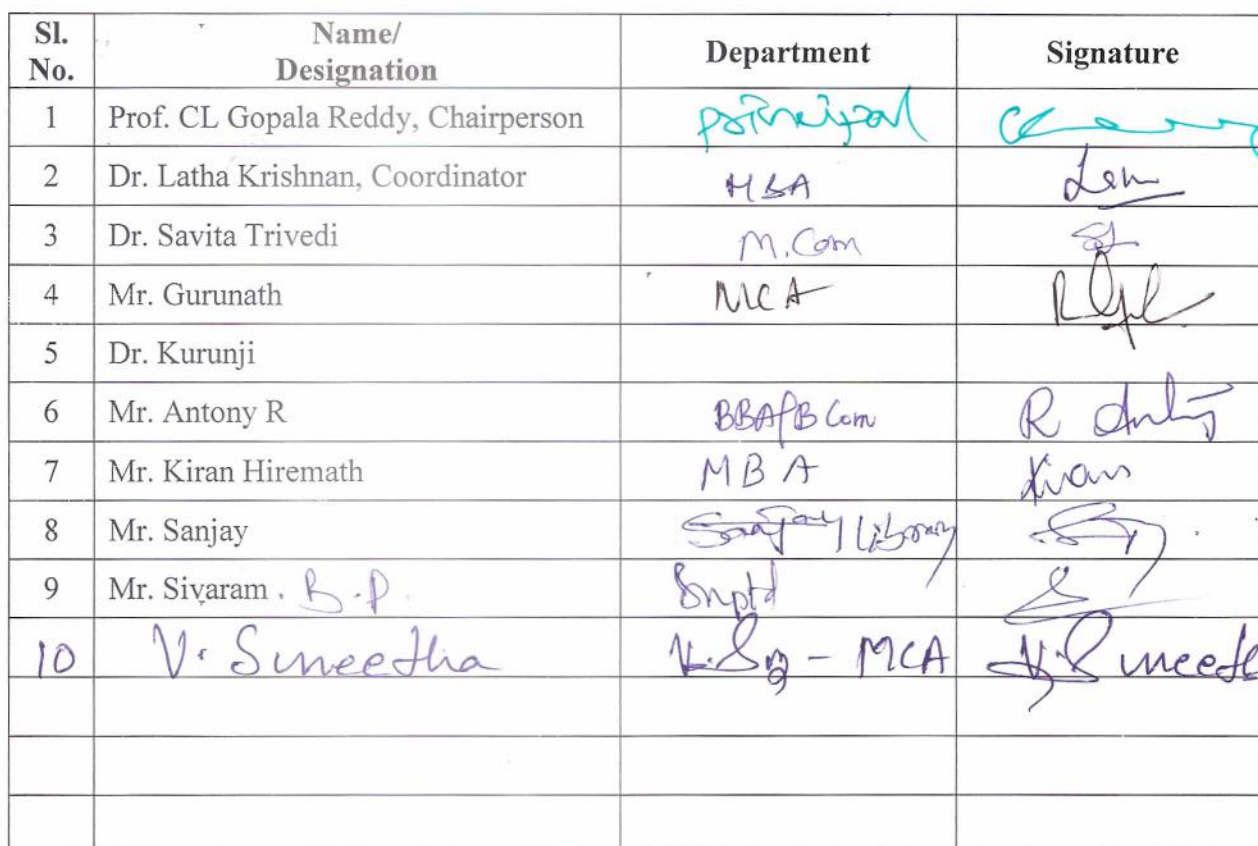 Sl. No. Name/ Designation Department Signature
1 Prof. CL Gopala Reddy, Chairperson Principal
2 Dr. Latha Krishnan, Coordinator MBA
3 Dr. Savita Trivedi M.Com
4 Mr. Gurunath MCA
5 Dr. Kurunji
6 Mr. Antony R BBA/B Com R Antony
7 Mr. Kiran Hiremath MBA Kiran
8 Mr. Sanjay Library
9 Mr. Sivaram . B.P.
10 V. Suneetha - MCA V. Suneetha